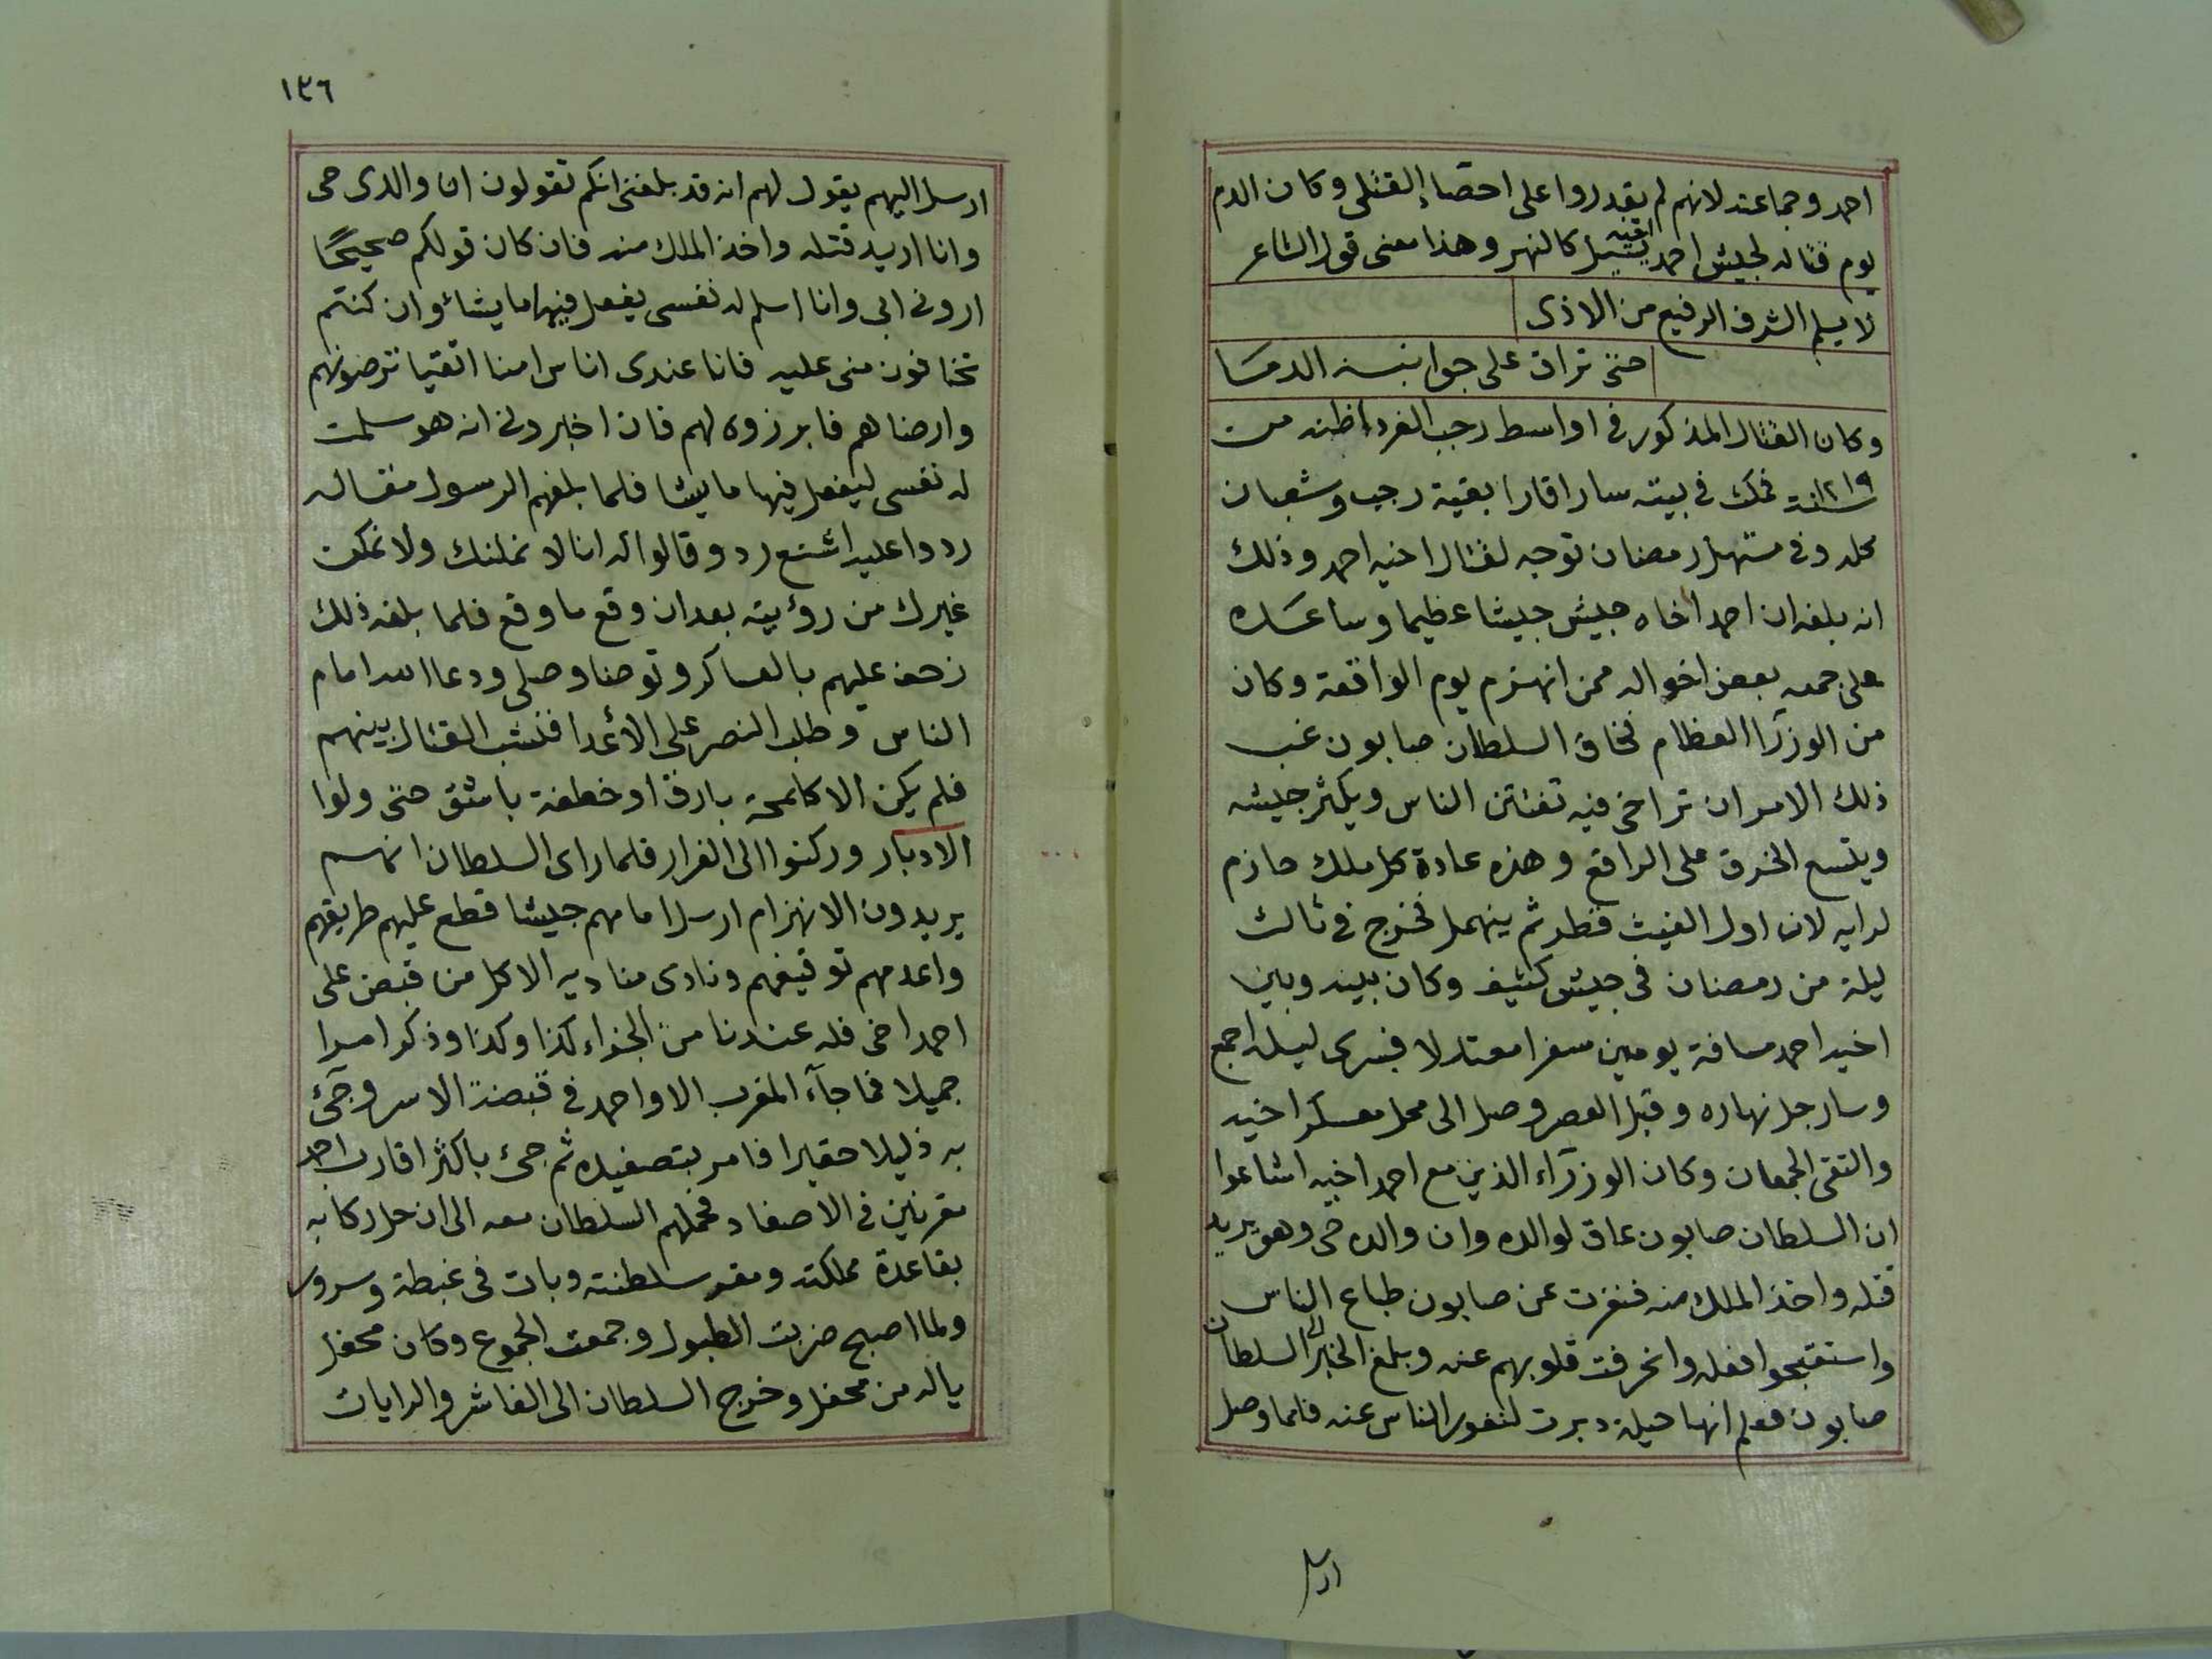 احمد وجماعته لانهم لم يقدروا على احصا القتلى وكان الدم
يوم قتاله لجيش احمد اخيه يسيل كالنهر وهذا معنى قول الشاعر
لا يسلم الشرف الرفيع من الاذى
حتى تراق على جوانبه الدما
وكان القتال المذكور فى اواسط رجب الفرد اظنه من
سنة ١٢١٩ فمكث فى بيته سارا قارا بقية رجب وشعبان
كله وفى مستهل رمضان توجه لقتال اخيه احمد وذلك
انه بلغه ان احمد اخاه جيش جيشا عظيما وساعده
على جمعه بعض اخواله ممن انهزم يوم الواقعة وكان
من الوزرآ العظام فخاف السلطان صابون غب
ذلك الامر ان تراخى فيه تفتتن الناس ويكثر جيشه
ويتسع الخرق على الراقع وهذه عادة كل ملك حازم
لرايه لان اول الغيث قطر ثم ينهمل فخرج فى ثالث
ليلة من رمضان فى جيش كثيف وكان بينه وبين
اخيه احمد مسافة يومين سفرا معتدلا فسرى ليله اجمع
وسار جل نهاره وقبل العصر وصل الى محل معسكر اخيه
والتقى الجمعان وكان الوزرآء الذين مع احمد اخيه اشاعوا
ان السلطان صابون عاق لوالده وان والده حى وهو يريد
قتله واخذ الملك منه فنفرت عن صابون طباع الناس
واستقبحوا فعله وانحرفت قلوبهم عنه وبلغ الخبر الى السلطان
صابون فعلم انها حيلة دبرت لنفور الناس عنه فلما وصل
ارسل
١٣٦
ارسل اليهم يقول لهم انه قد بلغنى انكم تقولون ان والدى حى
وانا اريد قتله واخذ الملك منه فان كان قولكم صحيحًا
ارونى ابى وانا اسلم له نفسى يفعل فيها ما يشاء وان كنتم
تخافون منى عليه فانا عندى اناس امنا اتقيا ترضونهم
وارضاهم فابرزوه لهم فان اخبرونى انه هو سلمت
له نفسى ليفعل فيها ما يشا فلما بلغهم الرسول مقاله
ردوا عليه اشنع رد وقالوا له انا لا نمكنك ولا نمكن
غيرك من رؤيته بعد ان وقع ما وقع فلما بلغه ذلك
زحف عليهم بالعساكر وتوضا وصلى ودعا الله امام
الناس وطلب النصر على الأعدا فنشب القتال بينهم
فلم يكن الا كلمحة بارق او خطفة باشق حتى ولوا
الادبار وركنوا الى الفرار فلما راى السلطان انهم
يريدون الانهزام ارسل امامهم جيشا قطع عليهم طريقهم
واعدمهم توفيقهم ونادى مناديه الا كل من قبض على
احمد اخى فله عندنا من الجزاء كذا وكذا وذكر امرا
جميلا فما جآء المغرب الا واحمد فى قبضة الاسر وجئ
به ذليلا حقيرا فامر بتصفيده ثم جئ باكثر اقارب احمد
مقرنين فى الاصفاد فحملهم السلطان معه الى ان حل ركابه
بقاعدة مملكته ومقر سلطنته وبات فى غبطة وسرور
ولما اصبح ضربت الطبول وجمعت الجموع وكان محفل
ياله من محفل وخرج السلطان الى الفاشر والرايات